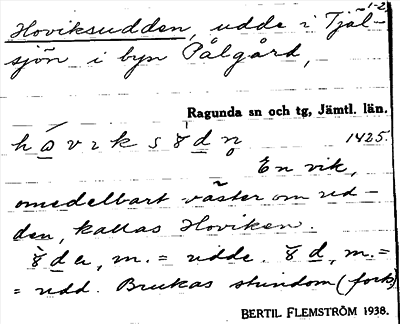 1-2,
Hoviksudden, udde i Tjäl-
sjön i byn Pålgård,
Ragunda sn och tg, Jämtl. län.
1425.
En vik,
omedelbart väster om ud-
den, kallas Hoviken.
m. = udde. m. =
= udd. Brukas stundom (forts)
BERTIL FLEMSTRÖM 1938.